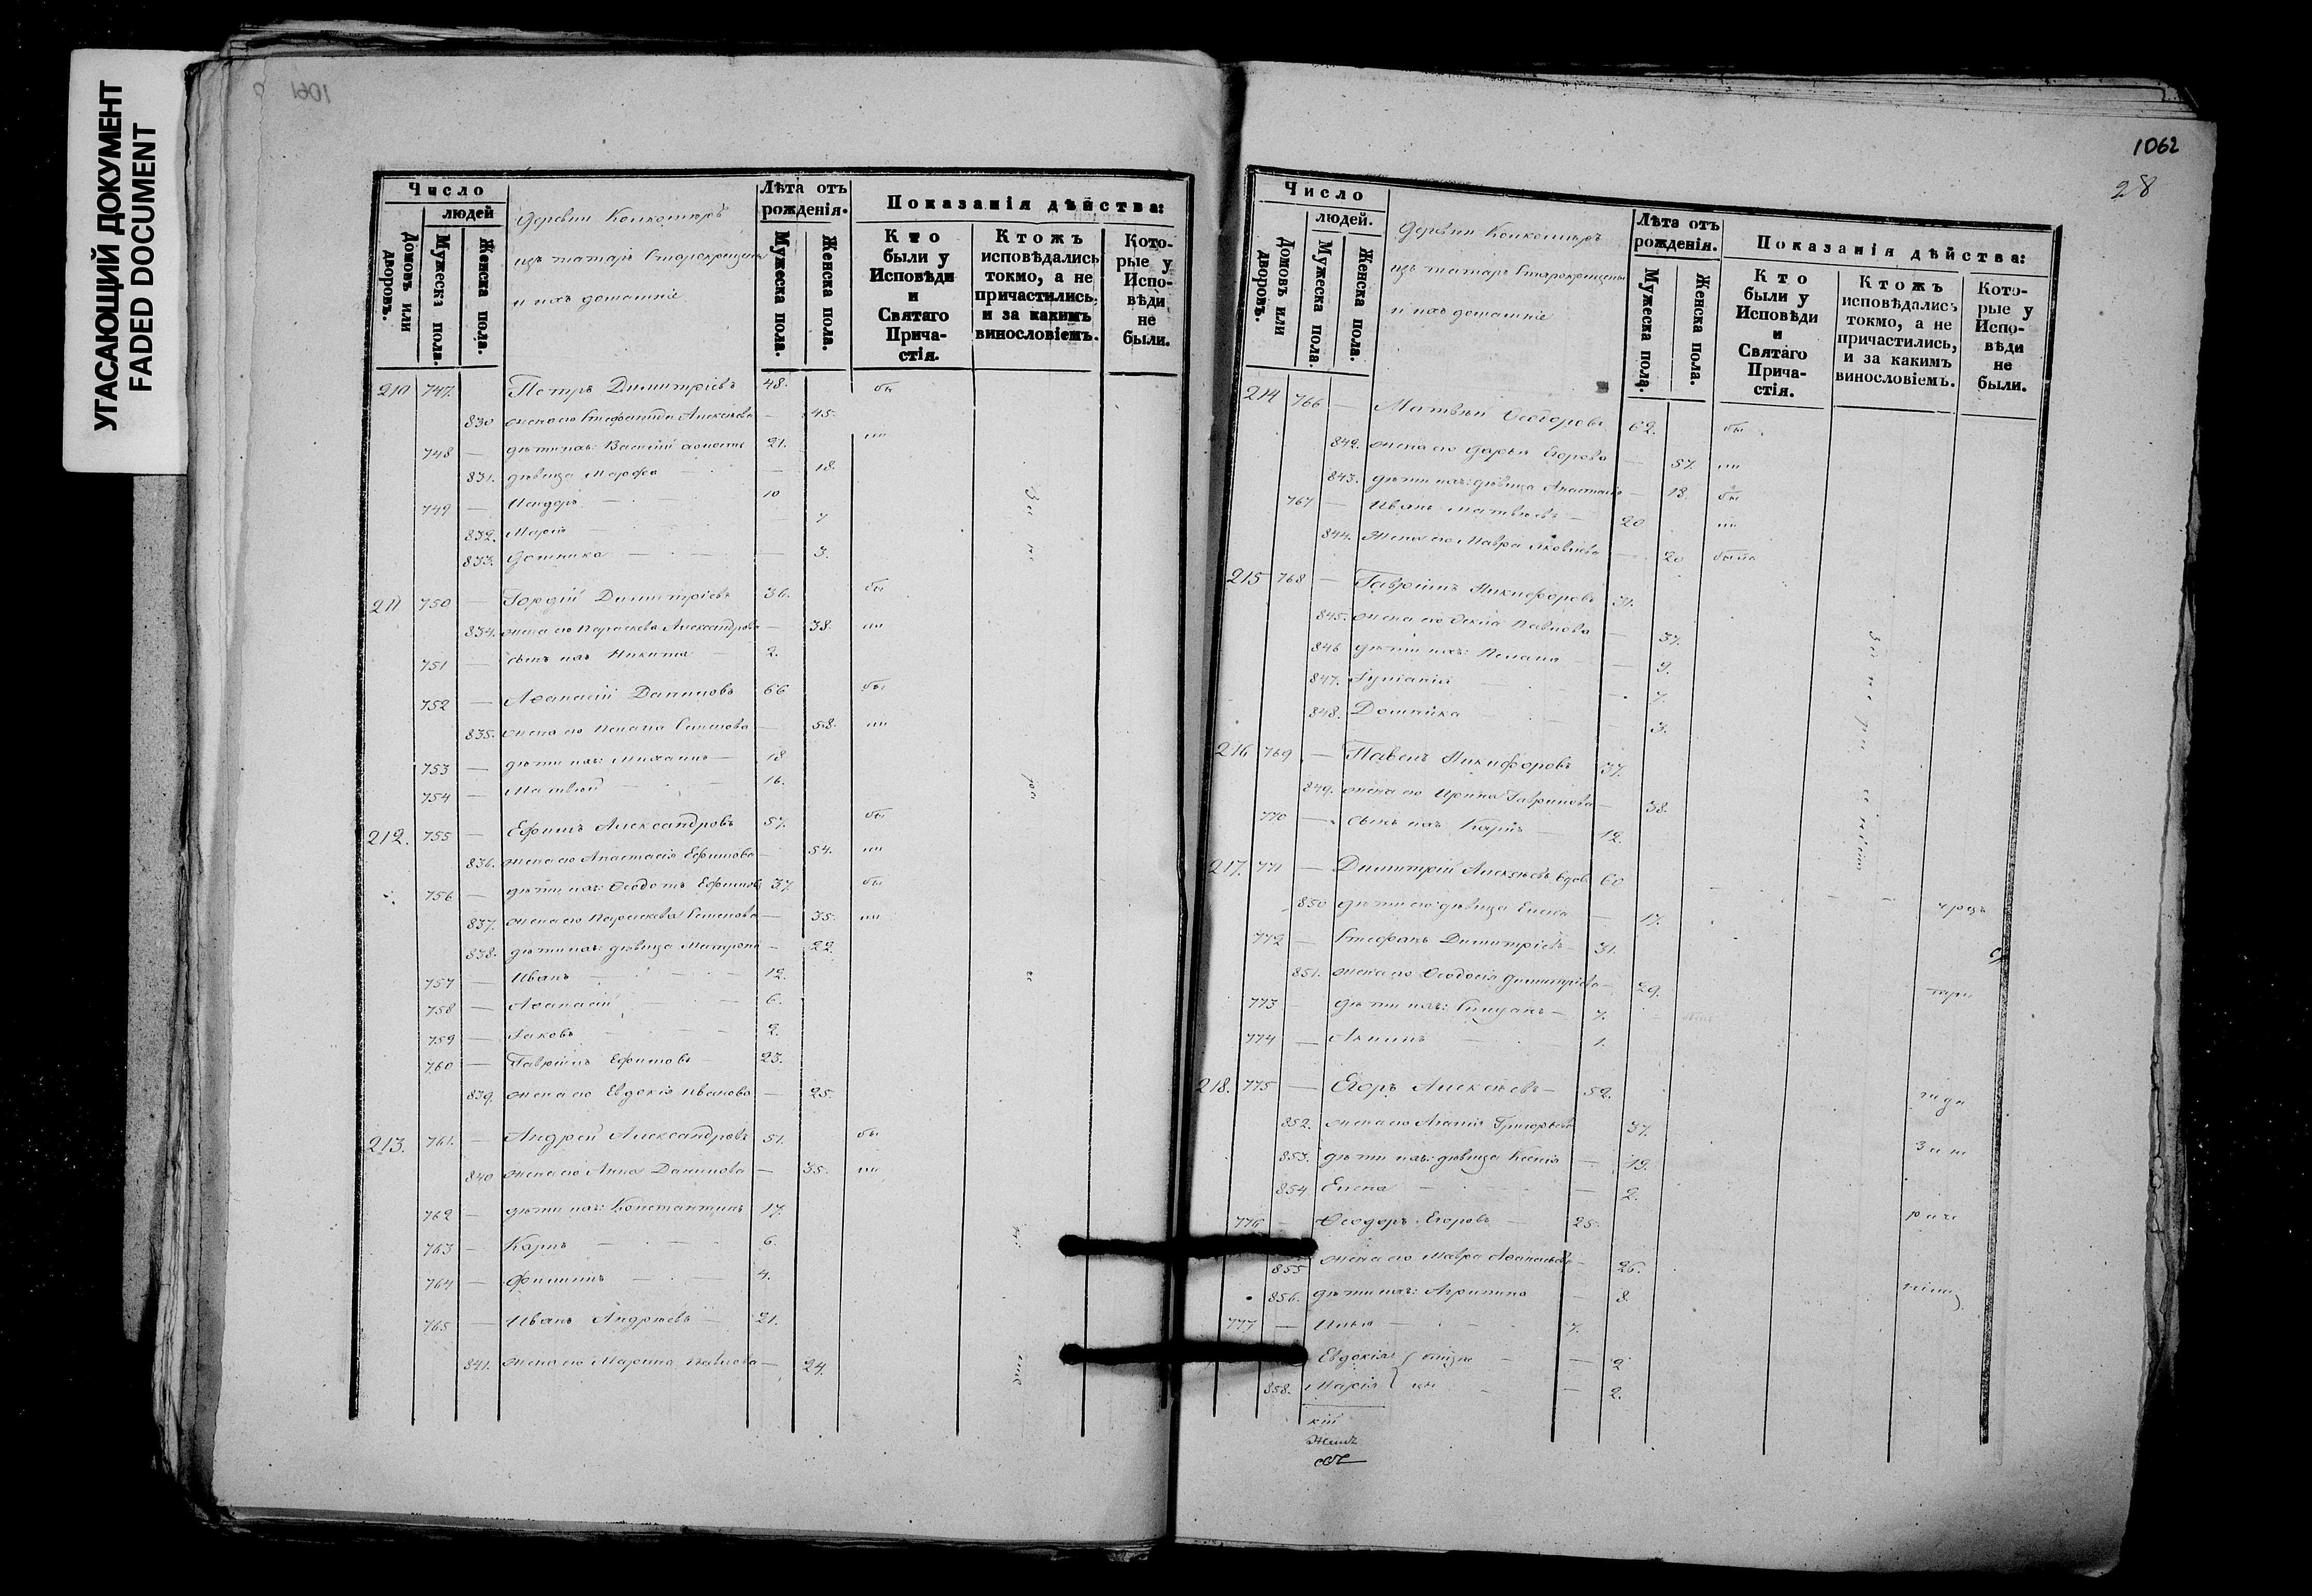 УГАСАЮЩИЙ ДОКУМЕНТ
FADED DOCUMENT
1061
Число
людей
Домовъ или дворовъ.
Мужеска пола.
Женска пола.
Деревни
изъ татаръ Старокрещены
и ихъ домашніе
Лѣта отъ рожденія.
Мужеска пола.
Женска пола.
Показанія дѣйства:
Кто были у Исповѣди и Святаго Прича-стія.
Ктожъ исповѣдались токмо, а не причастились, и за какимъ винословіемъ.
Кото-рые у Испо-вѣди не были.
210 747. Петръ Димитріевъ 48. бы
830 жена его Стефанида Алексѣева — 45.
748 — дѣти ихъ: Василій 21. ли
831. дѣвица Марфа — 18.
749 — Исидоръ 10
832. Марія 7
833. Домника — 3.
211 750 — Гордій Димитріевъ 36. бы
834. жена его Параскева Александрова — 38. ли
751 — сынъ ихъ Никита — 2.
752 — Аѳанасій Даниловъ 66 бы
835. жена его Пелагія Семенова — 58. ли
753 — дѣти ихъ: Михаилъ — 18
754 — Матвѣй 16.
212. 755 — Ефимъ Александровъ 57. бы
836. жена его Анастасія Ефимова — 54. ли
756 — дѣти ихъ: Ѳеодотъ Ефимовъ 37. бы
837. жена его Параскева Семенова — 35. ли
838. дѣти ихъ: дѣвица Матрона — 22.
757 — Иванъ 12.
758 — Аѳанасій 6.
759 — Іаковъ 2.
760 — Гавріилъ Ефимовъ 23.
839. жена его Евдокія Иванова — 25.
213. 761. — Андрей Александровъ 51. бы
840 жена его Анна Данилова — 35. ли
762 — дѣти ихъ: Константинъ 17.
763 — Карпъ 6.
764 — Филиппъ 4.
765 — Иванъ Андреевъ — 21.
841. жена его Марина Павлова — 24.
1062
28
Число
людей.
Домовъ или дворовъ.
Мужеска пола.
Женска пола.
Деревни
изъ татаръ Старокрещены
и ихъ домашніе
Лѣта отъ рожденія.
Мужеска пола.
Женска пола.
Показанія дѣйства:
Кто были у Исповѣди и Святаго Прича-стія.
Ктожъ исповѣдались токмо, а не причастились, и за какимъ винословіемъ.
Кото-рые у Испо-вѣди не были.
214 766 — Матвѣй Ѳеодоровъ 62. бы
842. жена его Дарья Егорова — 57. ли
843. дѣти ихъ: дѣвица Анастасія — 18. бы
767 — Иванъ Матвѣевъ — 20 ли
844. жена его Мавра Яковлева — 20 была
215 768 — Гавріилъ Никифоровъ 31.
845. жена его Ѳекла Павлова — 37.
846 дѣти ихъ: Пелагія — 9.
847. Іуліанія — 7.
848. Домника — 3.
216 769 — Павелъ Никифоровъ 37.
849. жена его Ирина Гаврилова — 38.
770 — сынъ ихъ Карпъ — 12.
217. 771 — Димитрій Алексѣевъ вдовъ 60
850 дѣти его: дѣвица Елена — 17.
772 — Стефанъ Димитріевъ — 31.
851. жена его Ѳеодосія Димитріева — 29.
773 — дѣти ихъ: — 7.
774 — 1.
218. 775 — Егоръ Алексѣевъ — 52.
852. жена его Григорьева 37.
853. дѣти ихъ: дѣвица Ксенія — 19.
854. Елена — 2.
776 — Ѳеодоръ Егоровъ — 25.
855 жена его Мавра Аѳанасьева — 26.
856. дѣти ихъ: Агрипина — 8.
777 — Илья — 7.
Евдокія близне — 2
858. Марія цы — 2.